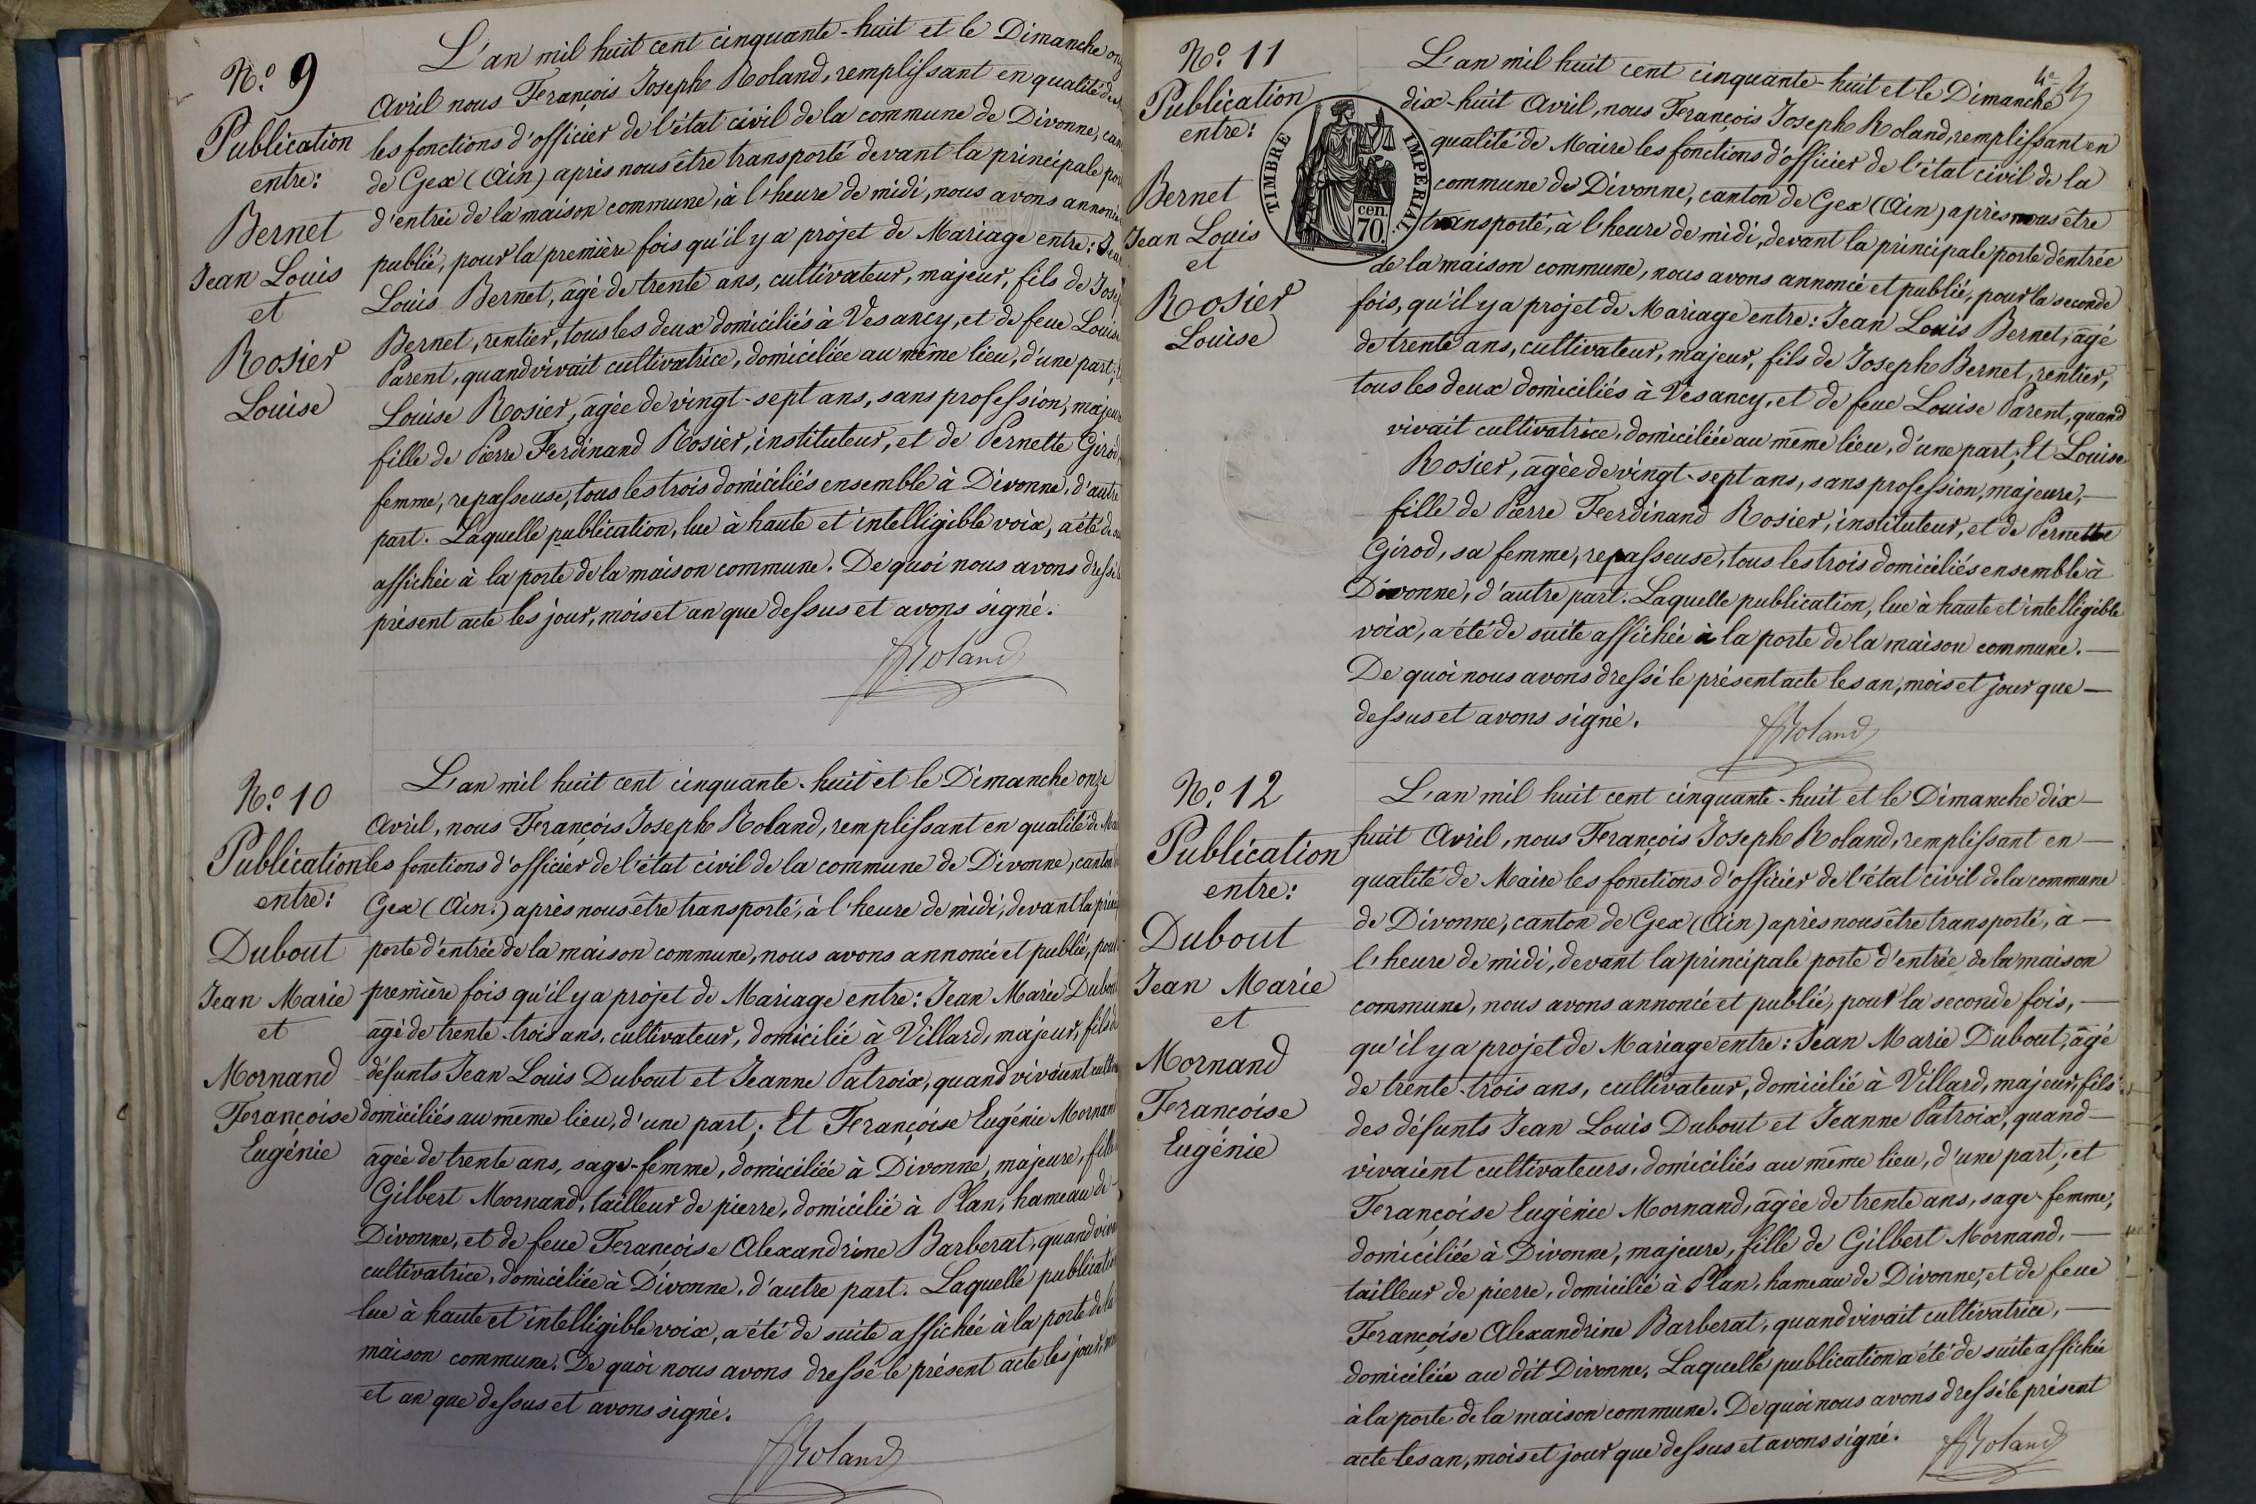 N.º 9
Publication
entre:
Bernet
Jean Louis
et
Rosier
Louise
L'an mil huit cent cinquante-huit et le Dimanche
Avril nous François Joseph Roland, remplissant en qualité de
les fonctions d'officier de l'état civil de la commune de Divonne,
de Gex (Ain) après nous être transporté devant la principale
d'entrée de la maison commune, à l'heure de midi, nous avons
publié, pour la première fois qu'il y a projet de Mariage entre:
Louis Bernet, âgé de trente ans, cultivateur, majeur, fils de
Bernet, rentier, tous les deux domiciliés à Vesancy, et de feue
Parent, quand vivait cultivatrice, domiciliée au même lieu, d'une part;
Louise Rosier, âgée de vingt-sept ans, sans profession,
fille de Pierre Ferdinand Rosier, instituteur, et de Pernette Girod
femme, repasseuse, tous les trois domiciliés ensemble à Divonne, d'autre
part. Laquelle publication, lue à haute et intelligible voix, a été de
affichée à la porte de la maison commune. De quoi nous avons dressé
présent acte les jour, mois et an que dessus et avons signé.
Roland
N.º 10
Publication
entre:
Dubout
Jean Marie
et
Mornand
Françoise
Eugénie
L'an mil huit cent cinquante-huit et le Dimanche onze
Avril, nous François Joseph Roland, remplissant en qualité de
les fonctions d'officier de l'état civil de la commune de Divonne, canton
Gex (Ain.) après nous être transporté, à l'heure de midi, devant la
porte d'entrée de la maison commune, nous avons annoncé et publié,
première fois qu'il y a projet de Mariage entre: Jean Marie Dubout
âgé de trente-trois ans, cultivateur, domicilié à Villard, majeur, fils
défunts Jean Louis Dubout et Jeanne Patroix, quand vivaient
domiciliés au même lieu, d'une part; Et Françoise Eugénie Mornand
âgée de trente ans, sage-femme, domiciliée à Divonne, majeure, fille
Gilbert Mornand, tailleur de pierre, domicilié à Plan, hameau de
Divonne, et de feue Françoise Alexandrine Barberat, quand
cultivatrice, domiciliée à Divonne, d'autre part. Laquelle
lue à haute et intelligible voix, a été de suite affichée à la porte de la
maison commune. De quoi nous avons dressé le présent acte les jour,
et an que dessus et avons signé.
Roland
4e
N.º 11
Publication
entre:
Bernet
Jean Louis
et
Rosier
Louise
TIMBRE IMPERIAL
cen.
70.
L'an mil huit cent cinquante-huit et le Dimanche
dix-huit Avril, nous François Joseph Roland, remplissant en
qualité de Maire les fonctions d'officier de l'état civil de la
commune de Divonne, canton de Gex (Ain) après nous être
transporté, à l'heure de midi, devant la principale porte d'entrée
de la maison commune, nous avons annoncé et publié, pour la seconde
fois, qu'il y a projet de Mariage entre: Jean Louis Bernet, âgé
de trente ans, cultivateur, majeur, fils de Joseph Bernet, rentier,
tous les deux domiciliés à Vesancy, et de feue Louise Parent, quand
vivait cultivatrice, domiciliée au même lieu, d'une part; Et Louise
Rosier, âgée de vingt-sept ans, sans profession, majeure, —
fille de Pierre Ferdinand Rosier, instituteur, et de Pernette
Girod, sa femme, repasseuse, tous les trois domiciliés ensemble à
Divonne, d'autre part. Laquelle publication, lue à haute et intelligible
voix, a été de suite affichée à la porte de la maison commune. —
De quoi nous avons dressé le présent acte les an, mois et jour que —
dessus et avons signé.
Roland
N.º 12
Publication
entre:
Dubout
Jean Marie
et
Mornand
Françoise
Eugénie
L'an mil huit cent cinquante-huit et le Dimanche dix —
huit Avril, nous François Joseph Roland, remplissant en —
qualité de Maire les fonctions d'officier de l'état civil de la commune
de Divonne, canton de Gex (Ain) après nous être transporté, à —
l'heure de midi, devant la principale porte d'entrée de la maison
commune, nous avons annoncé et publié, pour la seconde fois, —
qu'il y a projet de Mariage entre: Jean Marie Dubout, âgé
de trente-trois ans, cultivateur, domicilié à Villard, majeur, fils
des défunts Jean Louis Dubout et Jeanne Patroix, quand —
vivaient cultivateurs, domiciliés au même lieu, d'une part; et
Françoise Eugénie Mornand, âgée de trente ans, sage-femme,
domiciliée à Divonne, majeure, fille de Gilbert Mornand, —
tailleur de pierre, domicilié à Plan, hameau de Divonne, et de feue
Françoise Alexandrine Barberat, quand vivait cultivatrice, —
domiciliée au dit Divonne. Laquelle publication a été de suite affichée
à la porte de la maison commune. De quoi nous avons dressé le présent
acte les an, mois et jour que dessus et avons signé.
Roland